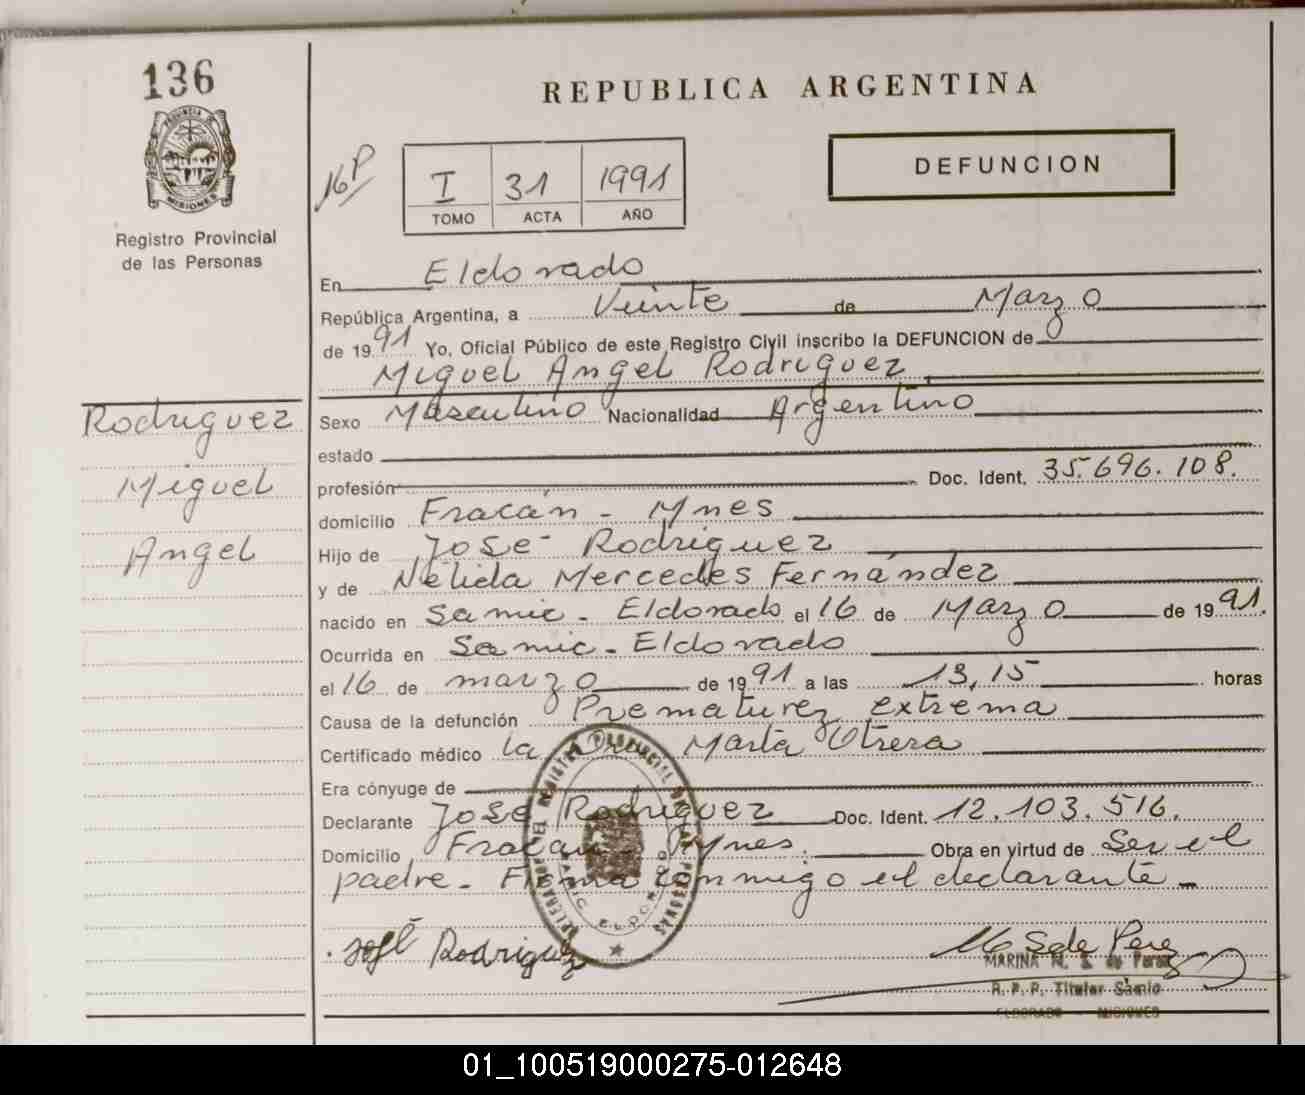 136
PROVINCIA DE
MISIONES
Registro Provincial
de las Personas
REPUBLICA ARGENTINA
16P
I 31 1991
TOMO ACTA AÑO
DEFUNCION
En Eldorado
República Argentina, a Veinte de Marzo
de 1991 Yo, Oficial Público de este Registro Civil inscribo la DEFUNCION de
Miguel Angel Rodriguez
Rodriguez
Miguel
Angel
Sexo Masculino Nacionalidad Argentino
estado
profesión Doc. Ident. 35.696.108.
domicilio Fracán - Ynes
Hijo de José Rodriguez
y de Nélida Mercedes Fernández
nacido en Samic - Eldorado el 16 de Marzo de 1991.
Ocurrida en Samic - Eldorado
el 16 de marzo de 1991 a las 13,15 horas
Causa de la defunción Prematurez extrema
Certificado médico la Dra Marta Utrera
Era cónyuge de
Declarante José Rodriguez Doc. Ident. 12.103.516.
Domicilio Fracan - Ynes. Obra en virtud de Ser el
padre - Firma conmigo el declarante -
José Rodriguez
M S de Perez
MARINA M. S. de Perez
R. P. P. Titular Samic
ELDORADO - MISIONES
01_100519000275-012648